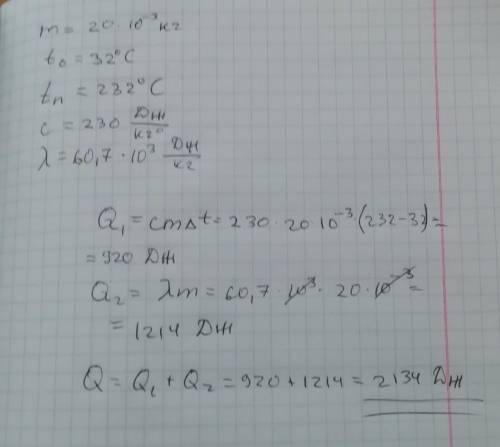 m = 20 · 10⁻³ кг
t₀ = 32°C
tп = 232°C
c = 230 Дж/кг°
λ = 60,7 · 10³ Дж/кг
Q₁ = cmΔt = 230 · 20 10⁻³ · (232-32) =
= 920 Дж
Q₂ = λm = 60,7 · 10³ · 20 · 10⁻³ =
= 1214 Дж
Q = Q₁ + Q₂ = 920 + 1214 = 2134 Дж